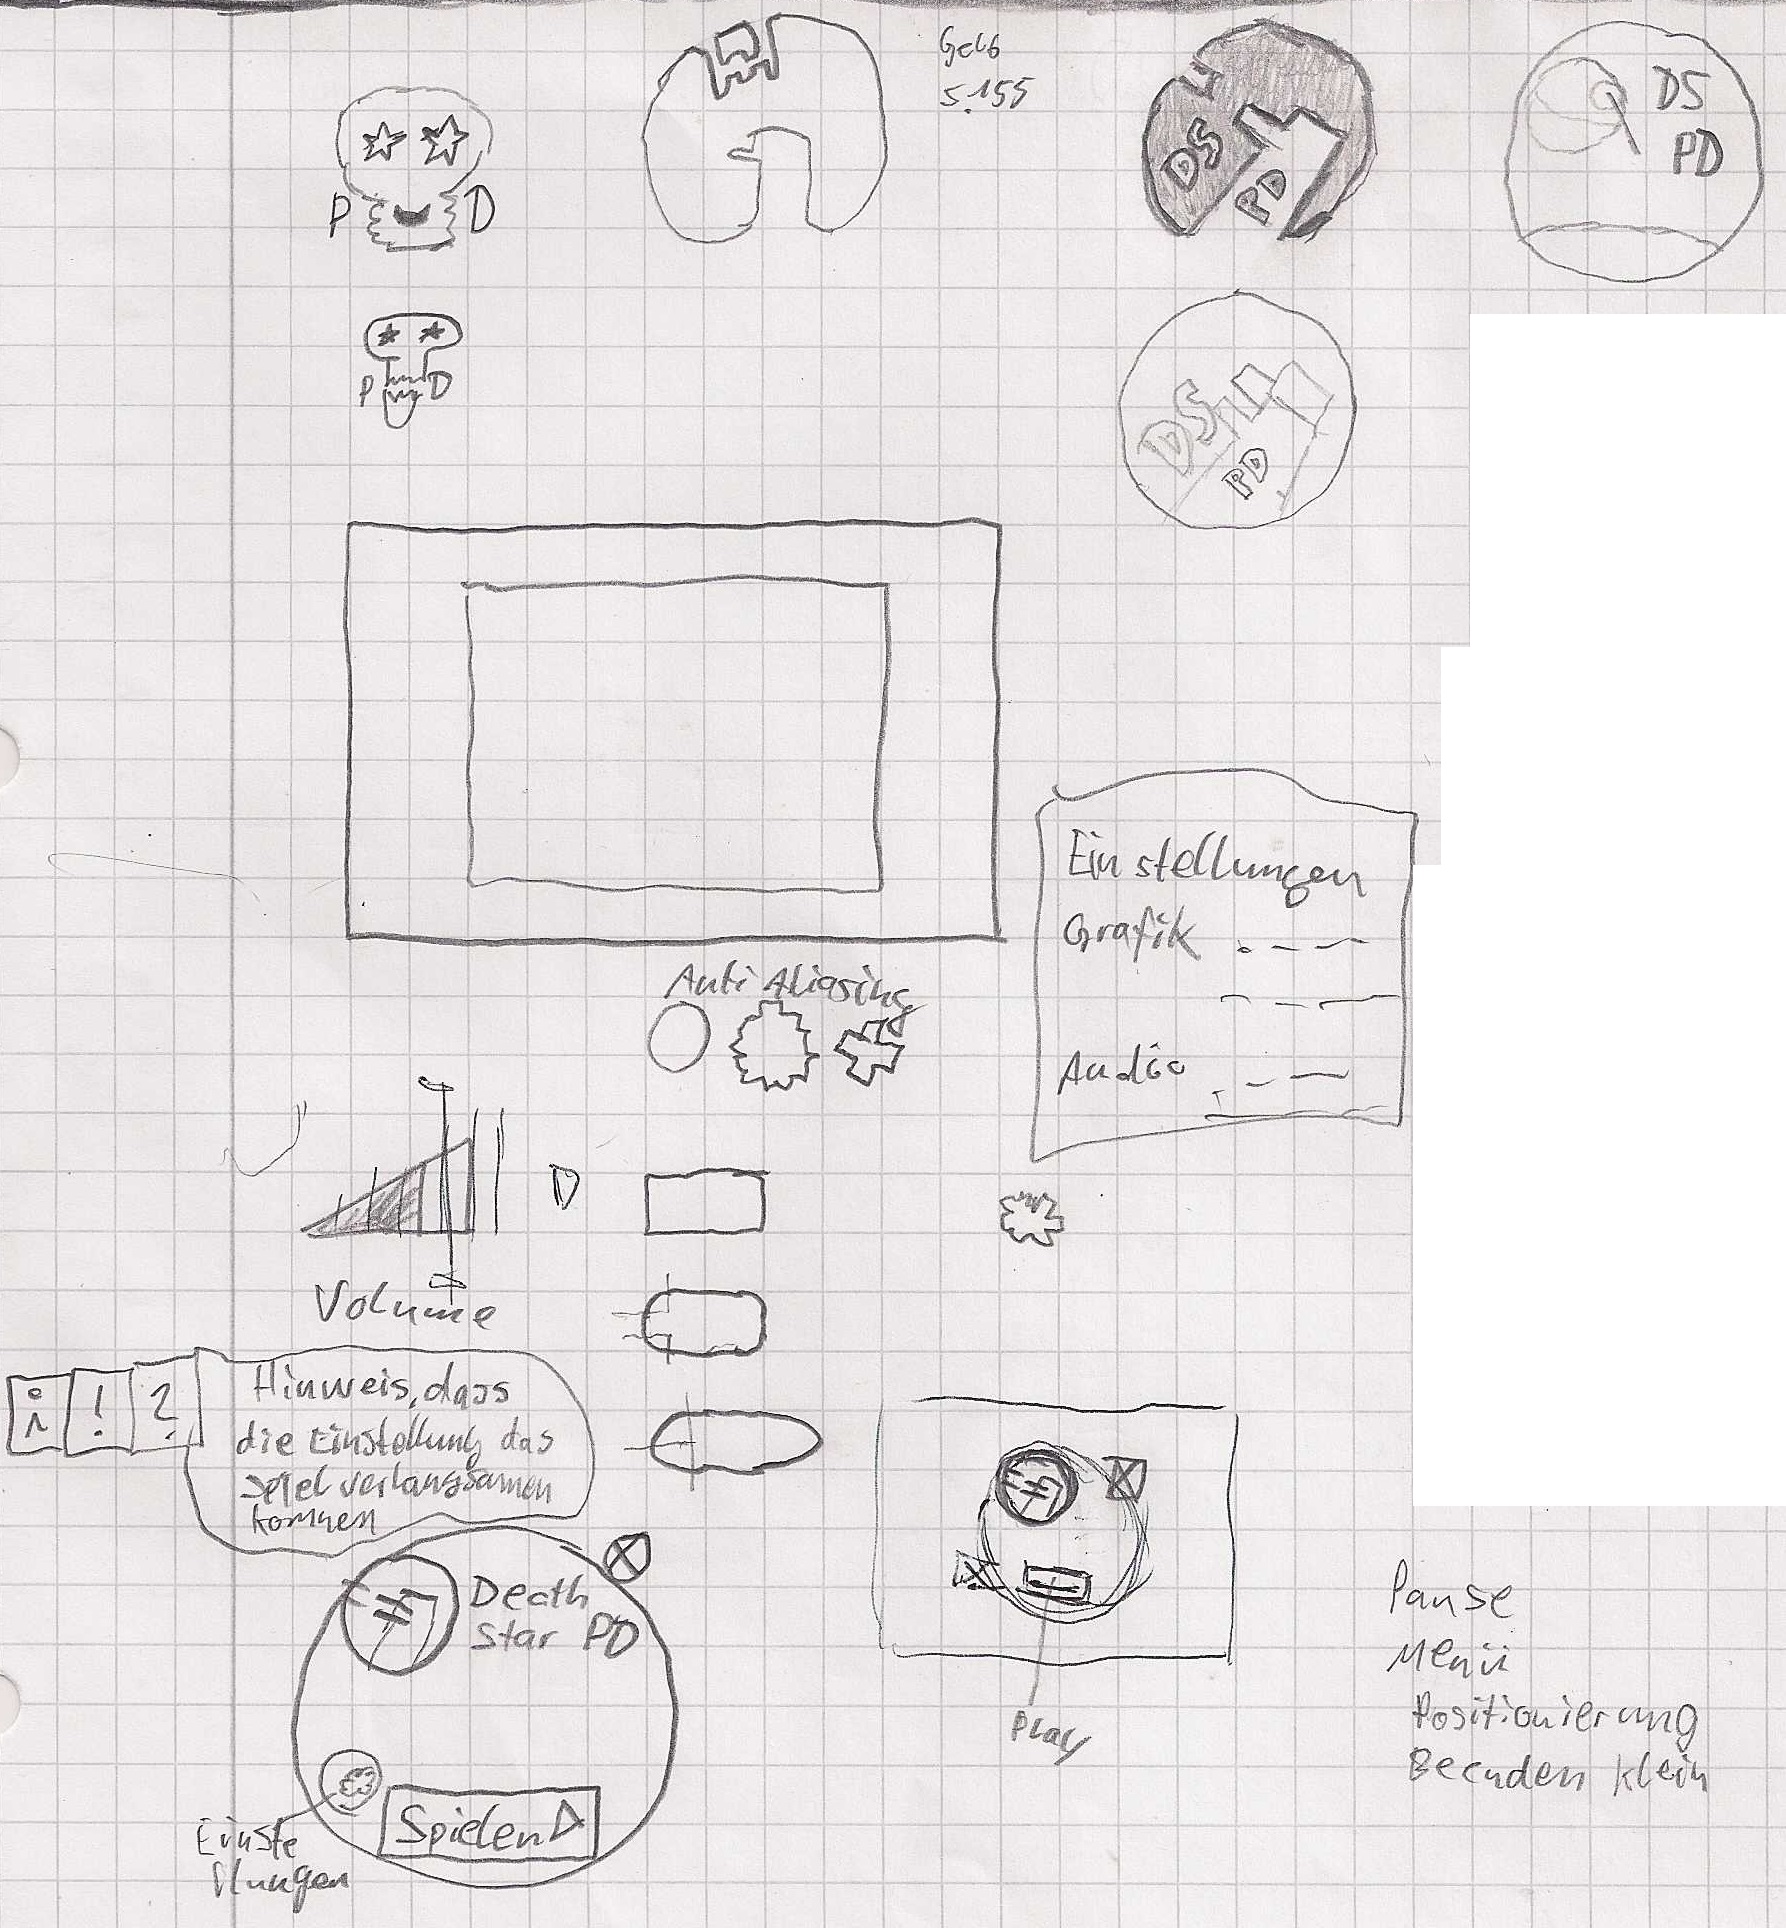 Gelb
S.155
P D
DS
PD
DS
PD
P D
DS
PD
Einstellungen
Grafik
Audio
Anti Aliasing
D
Volume
i ! ?
Hinweis, dass
die Einstellung das
Spiel verlangsamen
können
X
Death
Star PD
Einste
llungen
Spielen
X
X
Play
Pause
Menü
Positionierung
Beenden klein